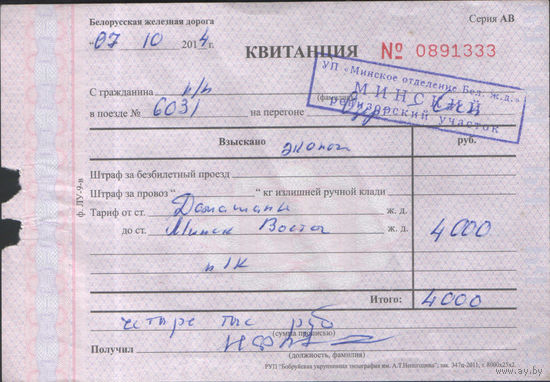 Белорусская железная дорога
Серия АВ
"07" 10 2014 г.
КВИТАНЦИЯ № 0891333
УП «Минское отделение Бел. ж.д.»
МИНСКИЙ
ревизорский участок
С гражданина п/п
(фамилия)
в поезде № 6031 на перегоне
Взыскано руб.
эконом
Штраф за безбилетный проезд
Штраф за провоз " " кг излишней ручной клади
Тариф от ст. Домашаны ж. д.
до ст. Минск Восточ ж. д. 4000
п/к
Итого: 4000
четыре тыс руб
(сумма прописью)
Получил
(должность, фамилия)
РУП "Бобруйская укрупненная типография им. А.Т.Непогодина", зак. 347ц-2011, т. 8000х25х2.
ф. ЛУ-9-в
www.ay.by